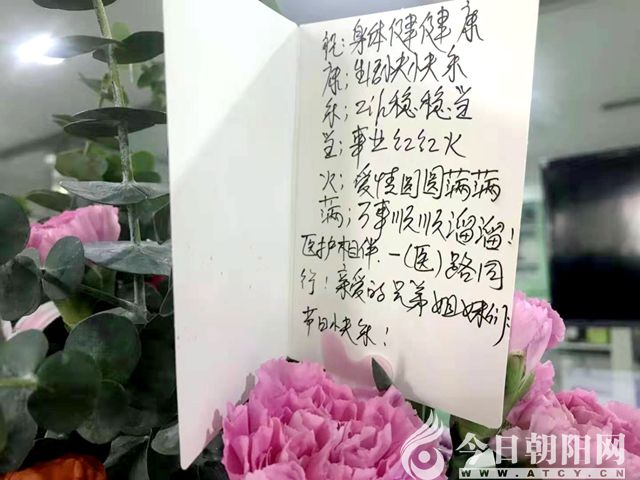 祝:身体健健康
康;生活快快乐
乐;工作稳稳当
当;事业红红火
火;爱情圆圆满满
满;万事顺顺溜溜!
医护相伴.一(医)路同
行!亲爱的兄弟姐妹们:
节日快乐!
今日朝阳网
WWW.ATCY.CN